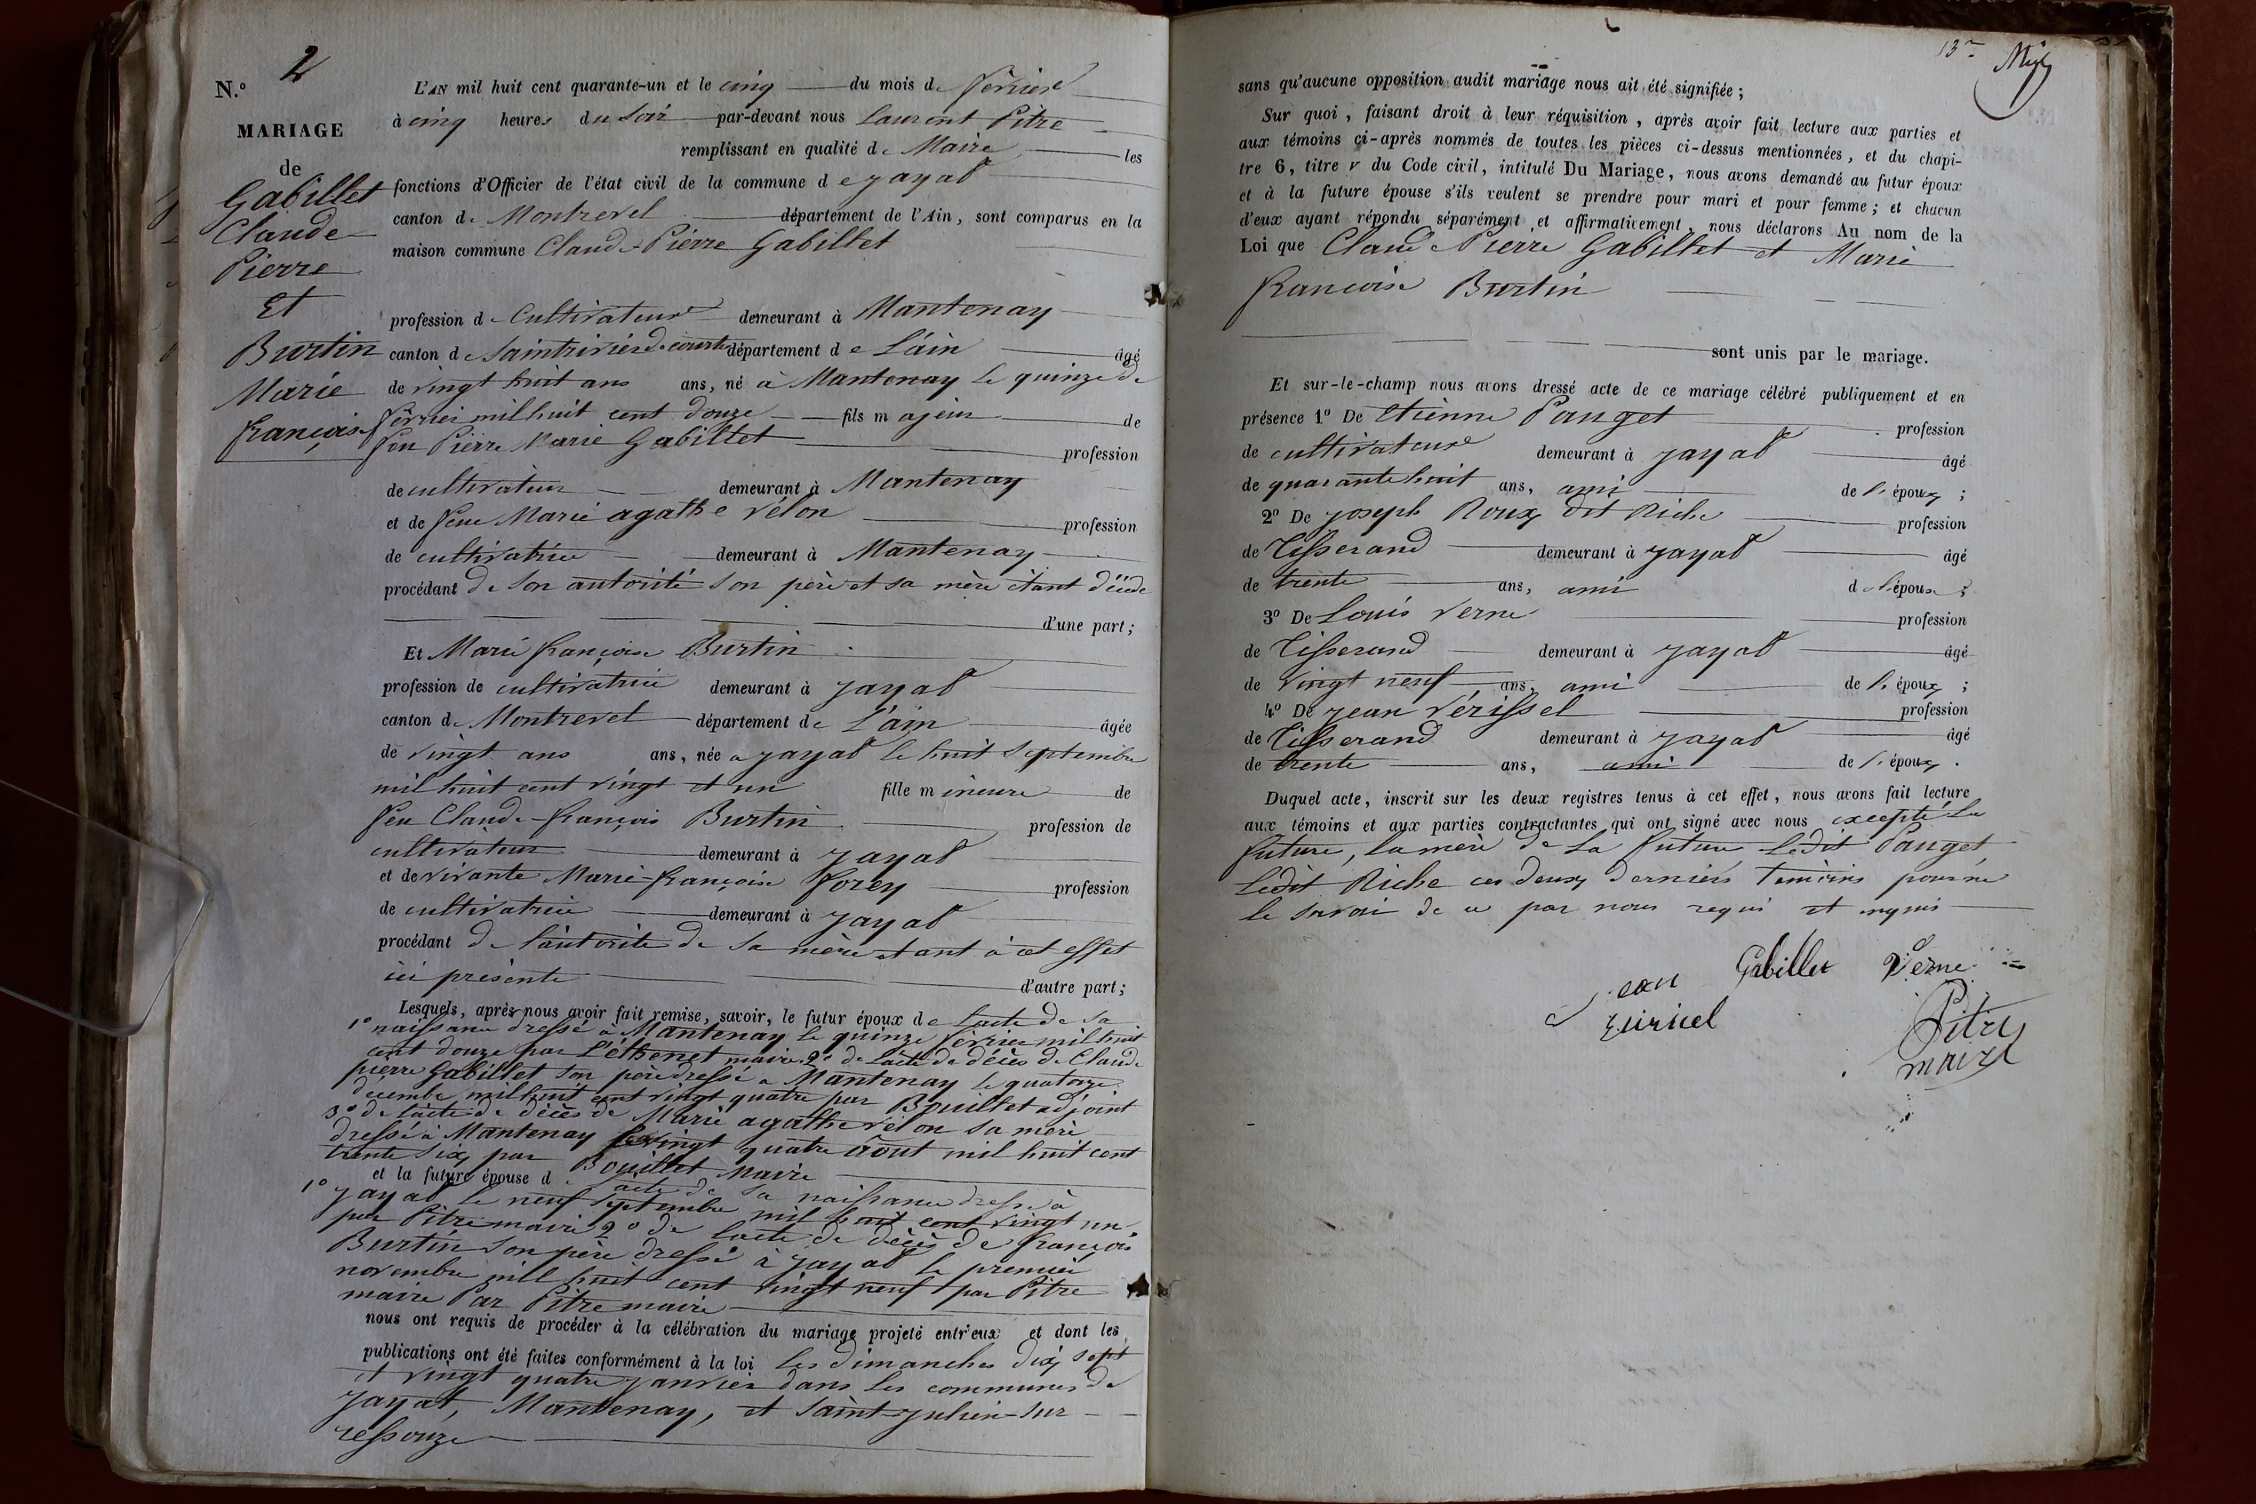 N.° 2
MARIAGE
de
Gabillet
Claude
Pierre
Et
Burtin
Marie
françoise
L'AN mil huit cent quarante-un et le cinq du mois de février
à cinq heures du soir par-devant nous Laurent Pitre
remplissant en qualité de Maire les
fonctions d'Officier de l'état civil de la commune de jayat
canton de Montrevel département de l'Ain, sont comparus en la
maison commune Claude Pierre Gabillet
profession de Cultivateur demeurant à Mantenay
canton de Saintrivier de courte département de L'ain âgé
de vingt huit ans ans, né à Mantenay le quinze de
février mil huit cent douze fils majeur de
feu Pierre Marie Gabillet profession
de cultivateur demeurant à Mantenay
et de feue Marie agathe vélon profession
de cultivatrice demeurant à Mantenay
procédant de son autorité son père et sa mère étant décédé
d'une part;
Et Marie françoise Burtin
profession de cultivatrice demeurant à jayat
canton de Montrevel département de L'ain âgée
de vingt ans ans, née a jayat le huit septembre
mil huit cent vingt et un fille mineure de
feu Claude françois Burtin profession de
cultivateur demeurant à jayat
et de vivante Marie françoise forey profession
de cultivatrice demeurant à jayat
procédant de l'autorité de sa mère étant à cet effet
ici présente d'autre part;
Lesquels, après nous avoir fait remise, savoir, le futur époux de l'acte de sa
1° naissance dressé à Mantenay le quinze février mil huit
cent douze par L'éthenet maire 2° de l'acte de décès de Claude
pierre Gabillet son père dressé a Mantenay le quatorze
décembre mil huit cent vingt quatre par Bouillet adjoint
3° de l'acte de décès de Marie agathe vélon sa mère
dressé à Mantenay le vingt quatre août mil huit cent
trente six par Bouillet Maire
et la future épouse d l'acte de sa naissance dressé à
1° jayat le neuf septembre mil huit cent vingt un
par Pitre maire 2° de l'acte de décès de françois
Burtin son père dressé à jayat le premier
novembre mil huit cent vingt neuf par Pitre
maire Par Pitre maire
nous ont requis de procéder à la célébration du mariage projeté entr'eux et dont les
publications ont été faites conformément à la loi les dimanches dix sept
et vingt quatre janvier dans les communes de
jayat, Mantenay, et Saint-julien-sur
ressouze
13
sans qu'aucune opposition audit mariage nous ait été signifiée;
Sur quoi, faisant droit à leur réquisition, après avoir fait lecture aux parties et
aux témoins ci-après nommés de toutes les pièces ci-dessus mentionnées, et du chapi-
tre 6, titre V du Code civil, intitulé Du Mariage, nous avons demandé au futur époux
et à la future épouse s'ils veulent se prendre pour mari et pour femme; et chacun
d'eux ayant répondu séparément et affirmativement, nous déclarons Au nom de la
Loi que Claude Pierre Gabillet et Marie
françoise Burtin
sont unis par le mariage.
Et sur-le-champ nous avons dressé acte de ce mariage célébré publiquement et en
présence 1° De etienne Pauget profession
de cultivateur demeurant à jayat âgé
de quarante huit ans, ami de l'époux;
2° De joseph Roux dit Riche profession
de Tisserand demeurant à jayat âgé
de trente ans, ami d l'épouse;
3° De Louis Verne profession
de Tisserand demeurant à jayat âgé
de vingt neuf ans, ami de l'époux;
4° De jean vérissel profession
de Tisserand demeurant à jayat âgé
de trente ans, ami de l'époux.
Duquel acte, inscrit sur les deux registres tenus à cet effet, nous avons fait lecture
aux témoins et aux parties contractantes qui ont signé avec nous excepté la
future, la mère de la future ledit Pauget
ledit Riche ces deux derniers témoins pour ne
le savoir de ce par nous requis et
Gabillet Verne
jean
Pitre
maire